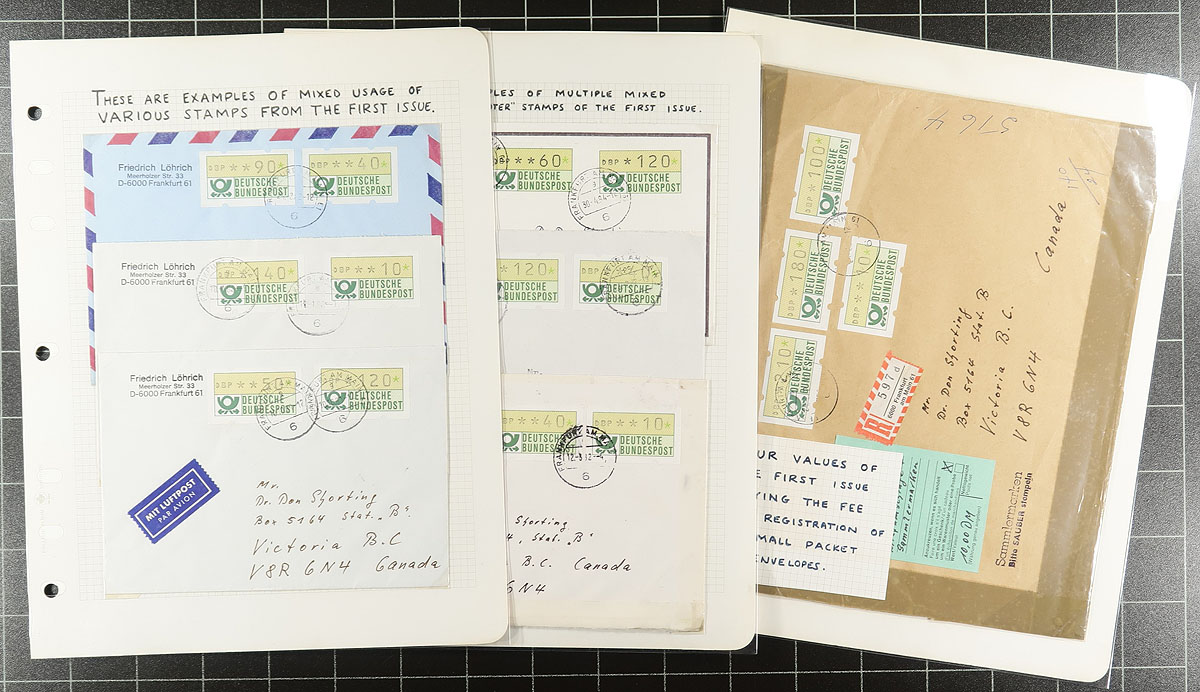 THESE ARE EXAMPLES OF MIXED USAGE OF
VARIOUS STAMPS FROM THE FIRST ISSUE.
Friedrich Löhrich
Meerholzer Str. 33
D-6000 Frankfurt 61
DBP **90*
DEUTSCHE
BUNDESPOST
DBP **40*
DEUTSCHE
BUNDESPOST
6
Friedrich Löhrich
Meerholzer Str. 33
D-6000 Frankfurt 61
DBP *140*
DEUTSCHE
BUNDESPOST
DBP **10*
DEUTSCHE
BUNDESPOST
6
6
Friedrich Löhrich
Meerholzer Str. 33
D-6000 Frankfurt 61
DBP **50*
DEUTSCHE
BUNDESPOST
120*
DEUTSCHE
BUNDESPOST
6
6
MIT LUFTPOST
PAR AVION
Mr.
Dr. Don Sporting
Box 5164 Stat. „B“
Victoria B.C
V8R 6N4 Canada
LES OF MULTIPLE MIXED
TER" STAMPS OF THE FIRST ISSUE.
**60*
DEUTSCHE
BUNDESPOST
DBP *120*
DEUTSCHE
BUNDESPOST
6
120*
DEUTSCHE
BUNDESPOST
DBP
DEUTSCHE
BUNDESPOST
Mr.
**40*
DEUTSCHE
BUNDESPOST
DBP **10*
DEUTSCHE
BUNDESPOST
FRANKFURT AM MAIN
6
Sporting
4, Stat. „B“
B.C. Canada
6N4
5164
DBP *100*
DEUTSCHE
BUNDESPOST
DBP *180*
DEUTSCHE
BUNDESPOST
10*
DEUTSCHE
BUNDESPOST
210*
DEUTSCHE
BUNDESPOST
R
597 d
6000 Frankfurt
am Main 61
Mr.
Dr. Don Sporting
Box 5164 Stat. B
Victoria B.C.
V8R 6N4
Canada
10,00 DM
Sammlermarken
Sammlermarken
Bitte SAUBER stempeln
UR VALUES OF
FIRST ISSUE
YING THE FEE
REGISTRATION OF
MALL PACKET
NVELOPES.